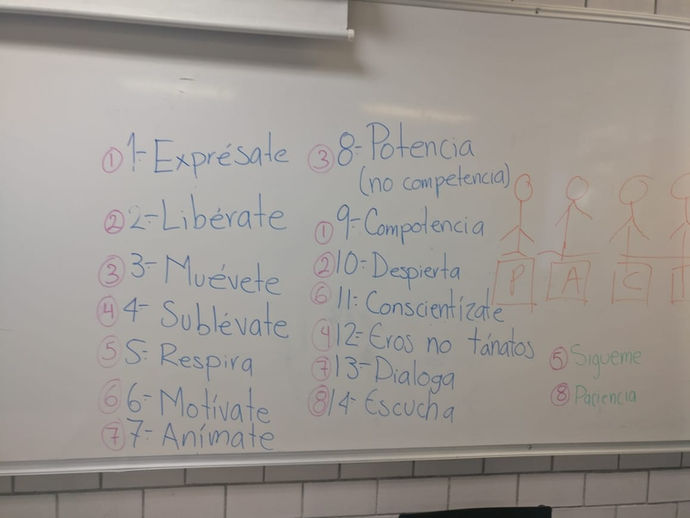 ① 1- Exprésate
② 2- Libérate
③ 3- Muévete
④ 4- Sublévate
⑤ 5- Respira
⑥ 6- Motívate
⑦ 7- Anímate
③ 8- Potencia
(no competencia)
① 9- Compotencia
② 10- Despierta
⑥ 11- Conscientízate
④ 12- Eros no tánatos
⑦ 13- Dialoga
⑧ 14- Escucha
P A C T
⑤ Sigueme
⑧ Paciencia